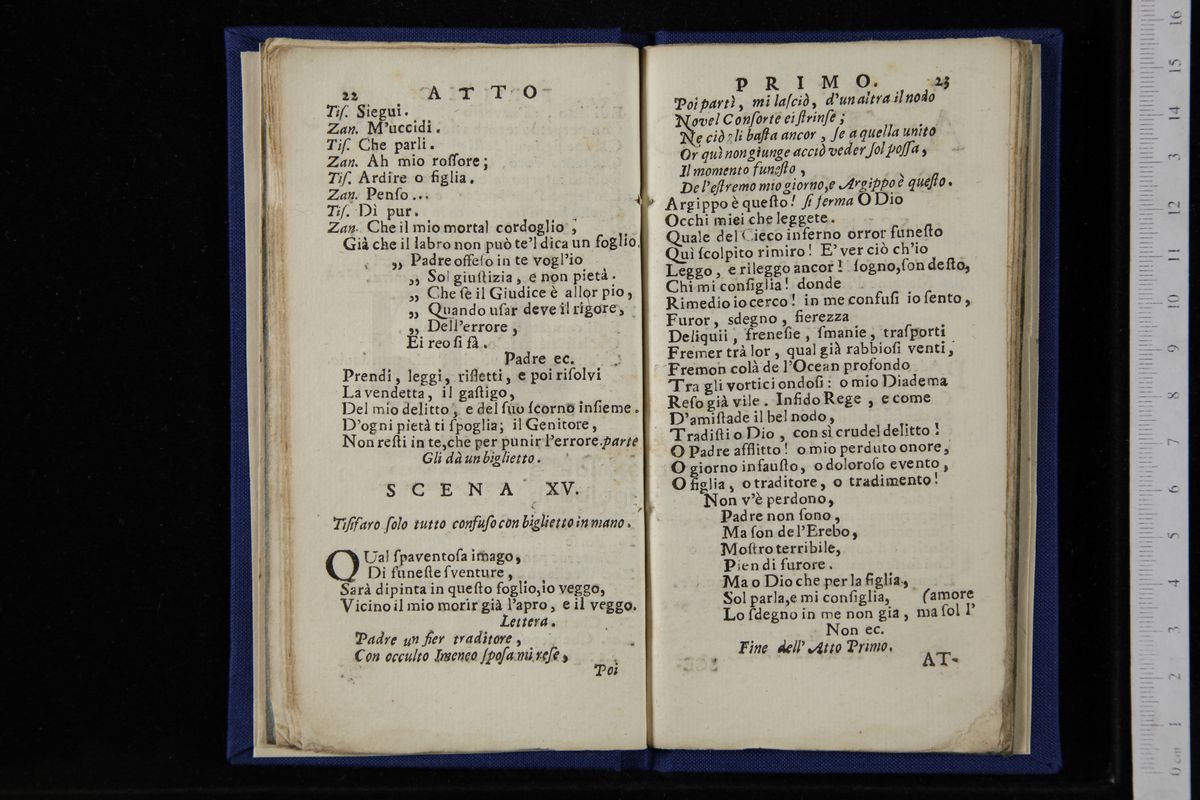 22 ATTO
Tiſ. Siegui.
Zan. M'uccidi.
Tiſ. Che parli.
Zan. Ah mio roſſore;
Tiſ. Ardire o figlia.
Zan. Penſo...
Tiſ. Dì pur.
Zan. Che il mio mortal cordoglio,
Già che il labro non può te'l dica un foglio.
„ Padre offeſo in te vogl'io
„ Sol giuſtizia, e non pietà.
„ Che ſe il Giudice è allor pio,
„ Quando uſar deve il rigore,
„ Dell'errore,
Ei reo ſi fà.
Padre ec.
Prendi, leggi, rifletti, e poi riſolvi
La vendetta, il gaſtigo,
Del mio delitto, e del ſuo ſcorno inſieme.
D'ogni pietà ti ſpoglia; il Genitore,
Non reſti in te, che per punir l'errore. parte
Gli dà un biglietto.
SCENA XV.
Tiſifaro ſolo tutto confuſo con biglietto in mano.
QUal ſpaventoſa imago,
Di funeſte ſventure,
Sarà dipinta in queſto foglio, io veggo,
Vicino il mio morir già l'apro, e il veggo.
Lettera.
Padre un fier traditore,
Con occulto Imeneo ſpoſa mi reſe,
Poi
PRIMO. 23
Poi partì, mi laſciò, d'un altra il nodo
Novel Conſorte ei ſtrinſe;
Ne ciò gli baſta ancor, ſe a quella unito
Or quì non giunge acciò veder ſol poſſa,
Il momento funeſto,
De l'eſtremo mio giorno, e Argippo è queſto.
Argippo è queſto! ſi ferma O Dio
Occhi miei che leggete.
Quale del Cieco inferno orror funeſto
Quì ſcolpito rimiro! E' ver ciò ch'io
Leggo, e rileggo ancor! ſogno, ſon deſto,
Chi mi conſiglia! donde
Rimedio io cerco! in me confuſi io ſento,
Furor, sdegno, fierezza
Deliquii, freneſie, ſmanie, traſporti
Fremer trà lor, qual già rabbioſi venti,
Fremon colà de l'Ocean profondo
Tra gli vortici ondoſi: o mio Diadema
Reſo già vile. Infido Rege, e come
D'amiſtade il bel nodo,
Tradiſti o Dio, con sì crudel delitto!
O Padre afflitto! o mio perduto onore,
O giorno infauſto, o doloroſo evento,
O figlia, o traditore, o tradimento!
Non v'è perdono,
Padre non ſono,
Ma ſon de l'Erebo,
Moſtro terribile,
Pien di furore.
Ma o Dio che per la figlia,
Sol parla, e mi conſiglia, (amore
Lo ſdegno in me non gia, ma ſol l'
Non ec.
Fine dell' Atto Primo.
AT-
16
15
14
13
12
11
10
9
8
7
6
5
4
3
2
1
0 cm